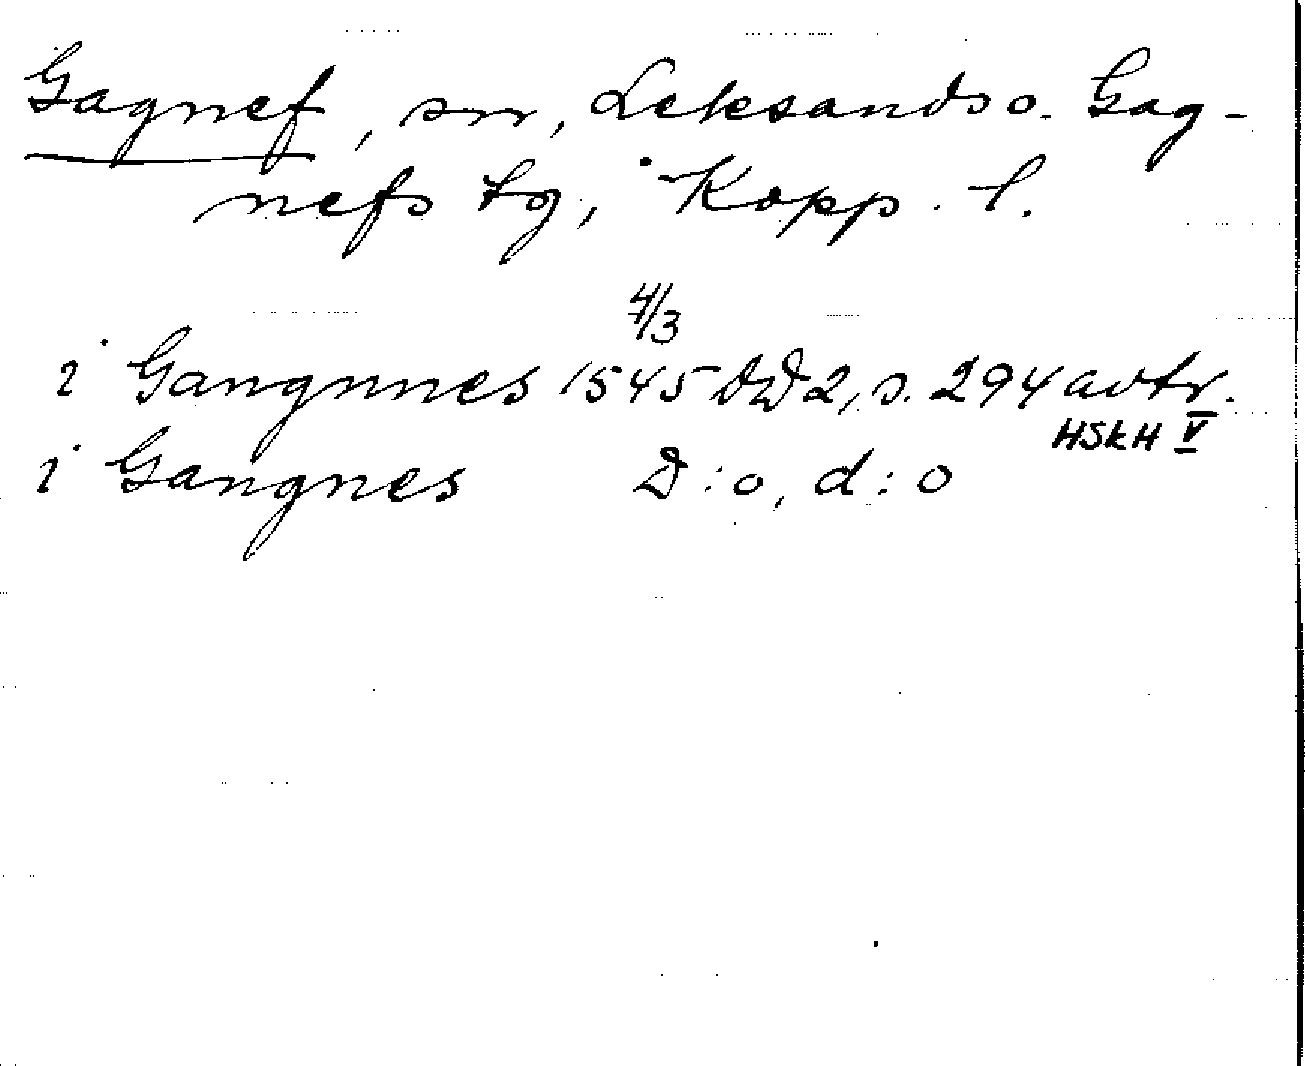 Gagnef, sn, Leksands o. Gag-
nefs tg, Kopp. l.
4/3
i Gangnnes 1545 DD 2, s. 294 avtr.
HSkH V
i Gangnes D:o, d:o